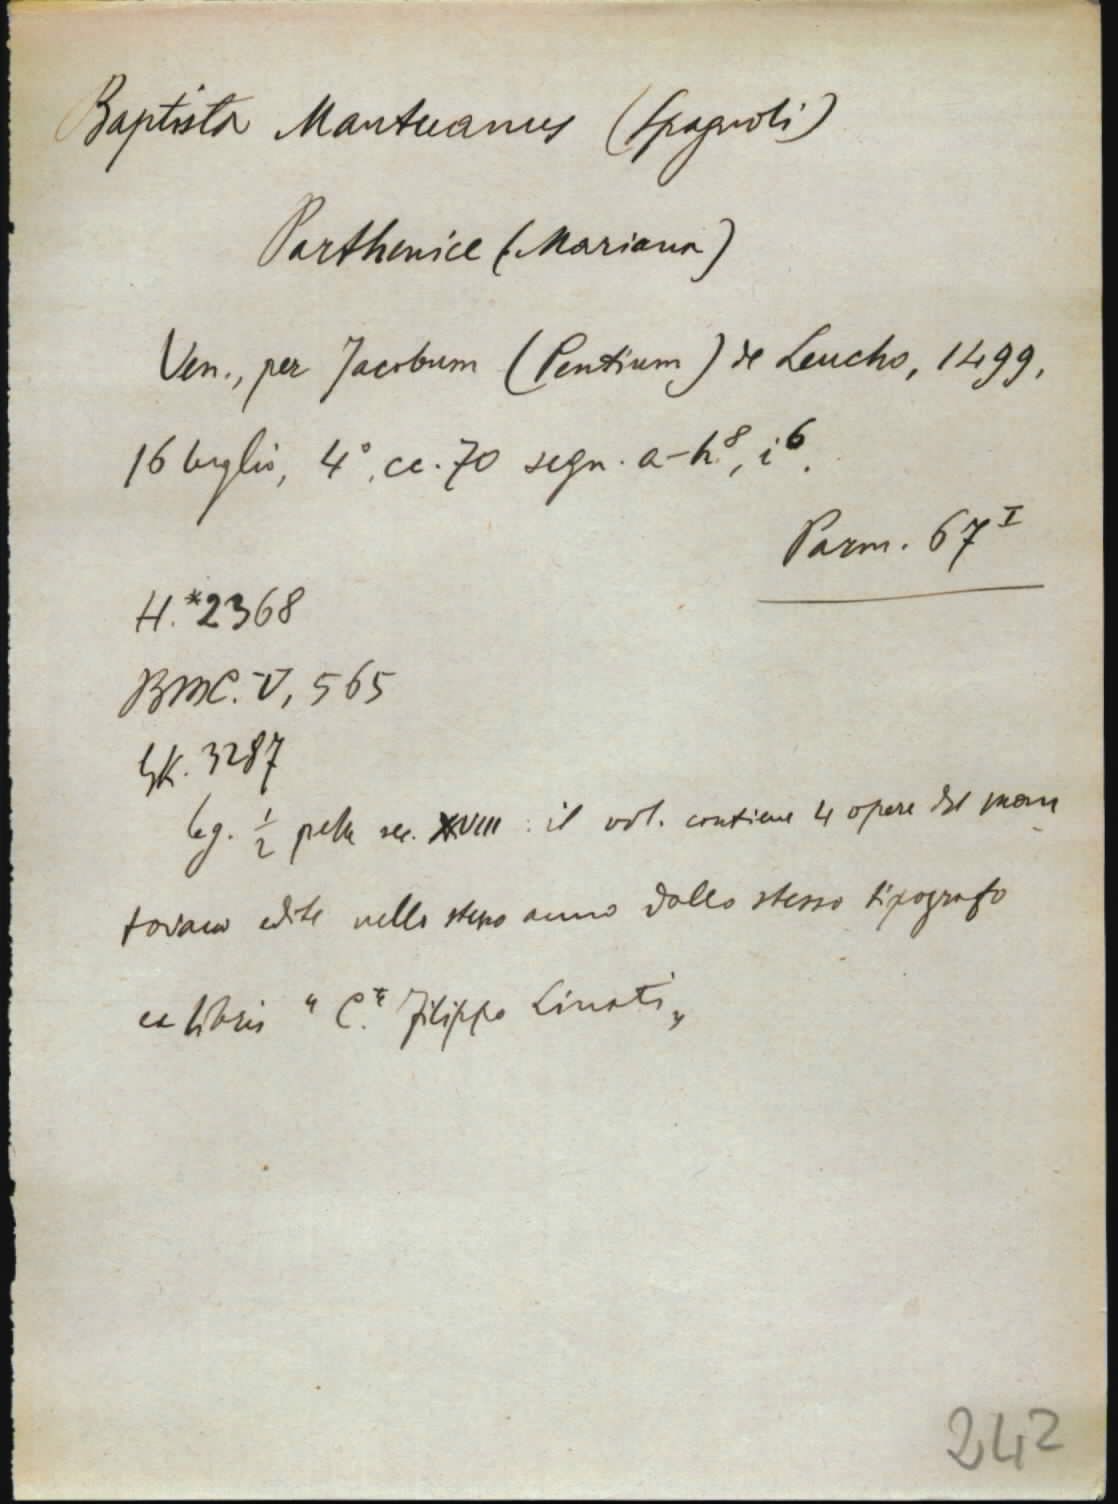 Baptista Mantuanus (Spagnoli)
Parthenice (Mariana)
Ven., per Jacobum (Pentium) de Leucho, 1499,
16 luglio, 4°, cc. 70 segn. a-h⁸, i⁶.
Parm. 67ᴵ
H. *2368
BMC. V, 565
GK. 3287
leg. ½ pelle sec. XVIII : il vol. contiene 4 opere del man
tovano edite nello stesso anno dallo stesso tipografo
ex libris "C.te Filippo Linati"
242